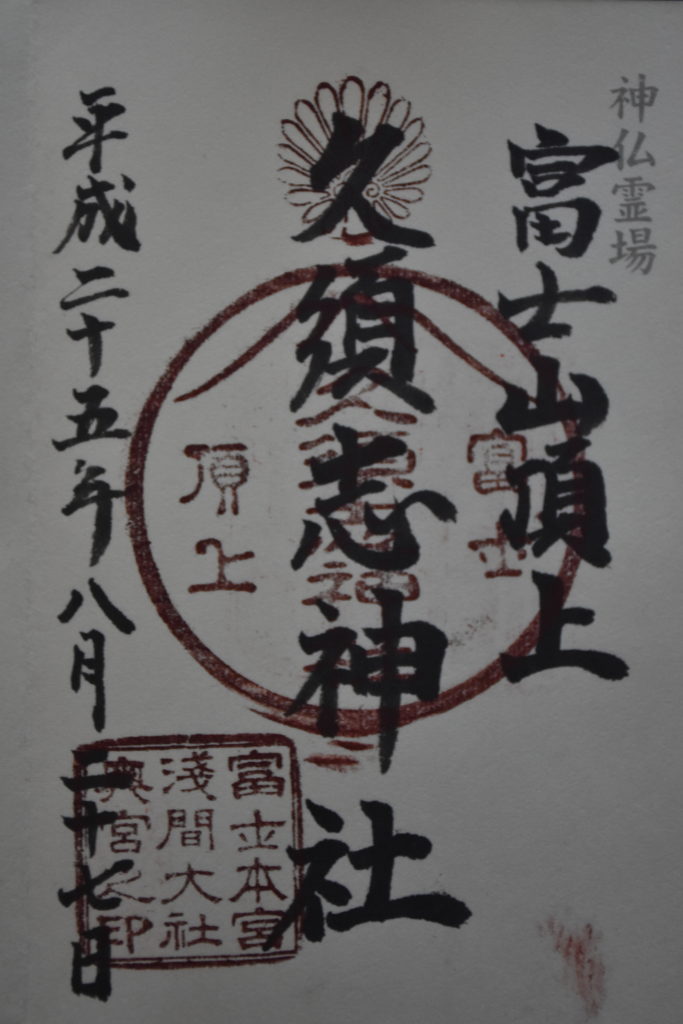 神仏霊場
富士山頂上
久須志神社
平成二十五年八月二十七日
富士
頂上
富士本宮
淺間大社
奥宮之印